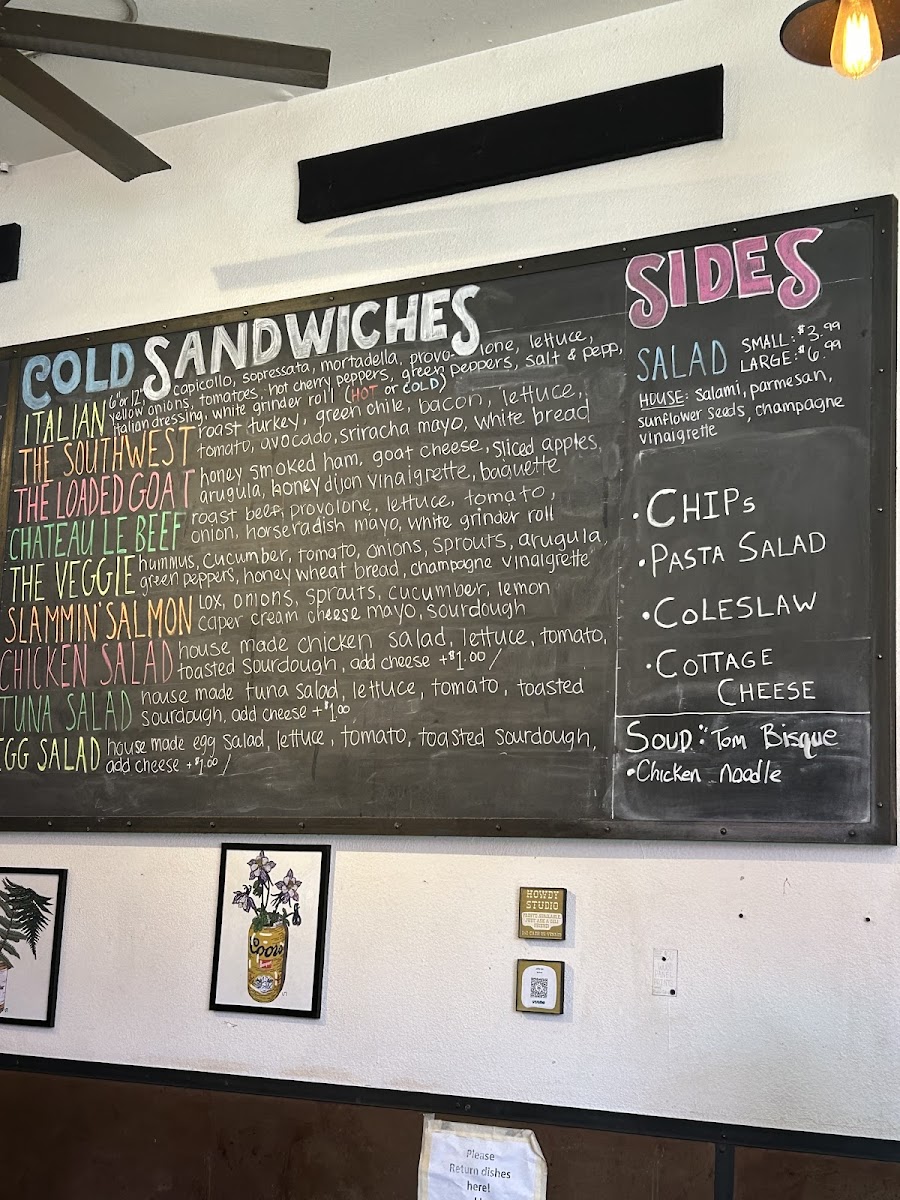 COLD SANDWICHES
ITALIAN 6" or 12" capicollo, sopressata, mortadella, provolone, lettuce,
yellow onions, tomatoes, hot cherry peppers, green peppers, salt & pepp,
italian dressing, white grinder roll (HOT or COLD)
THE SOUTHWEST roast turkey, green chile, bacon, lettuce,
tomato, avocado, sriracha mayo, white bread
THE LOADED GOAT honey smoked ham, goat cheese, sliced apples,
arugula, honey dijon vinaigrette, baguette
CHATEAU LE BEEF roast beef, provolone, lettuce, tomato,
onion, horseradish mayo, white grinder roll
THE VEGGIE hummus, cucumber, tomato, onions, sprouts, arugula,
green peppers, honey wheat bread, champagne vinaigrette
SLAMMIN' SALMON lox, onions, sprouts, cucumber, lemon
caper cream cheese mayo, sourdough
CHICKEN SALAD house made chicken salad, lettuce, tomato,
toasted sourdough, add cheese +$1.00/
TUNA SALAD house made tuna salad, lettuce, tomato, toasted
sourdough, add cheese +$1.00
EGG SALAD house made egg salad, lettuce, tomato, toasted sourdough,
add cheese +$1.00/
SIDES
SALAD SMALL: $3.99
LARGE: $6.99
HOUSE: Salami, parmesan,
sunflower seeds, champagne
vinaigrette
• CHIPS
• PASTA SALAD
• COLESLAW
• COTTAGE
CHEESE
SOUP: Tom Bisque
• Chicken noodle
Coors
HOWDY
STUDIO
Please
Return dishes
here!